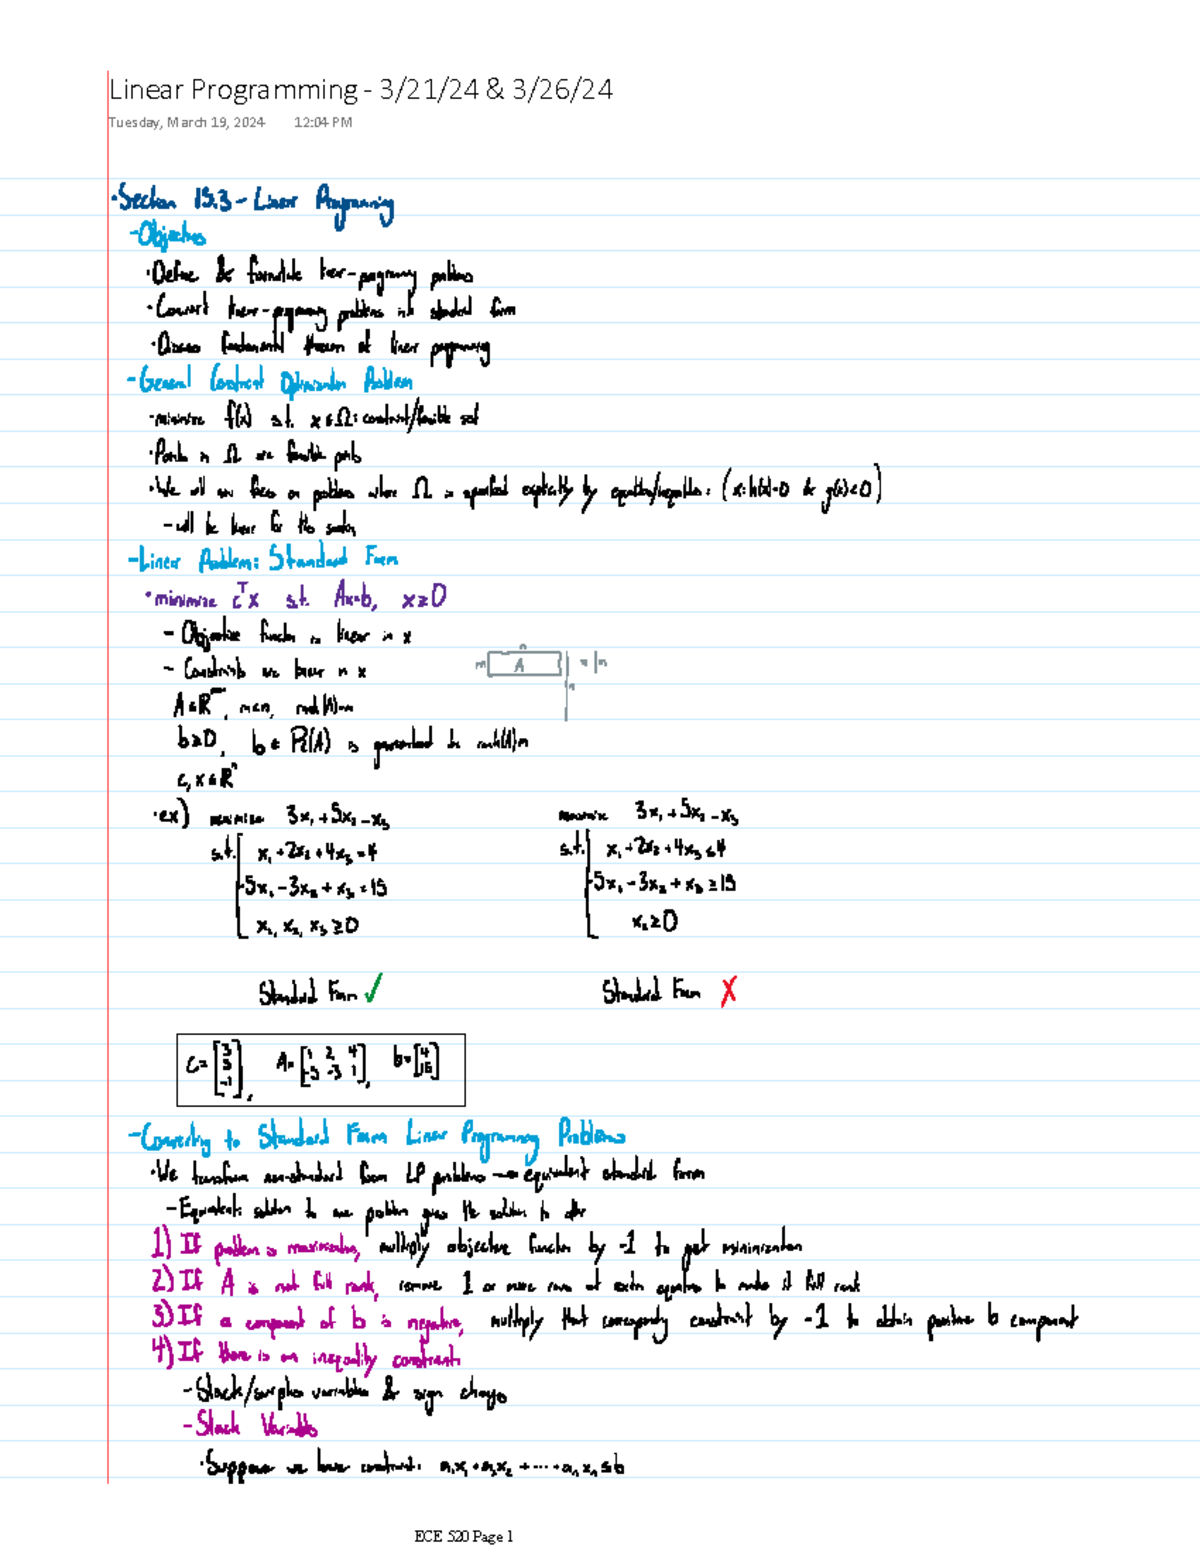 Linear Programming - 3/21/24 & 3/26/24
Tuesday, March 19, 2024 12:04 PM
·Section 15.3 - Linear Programming
-Objectives
·Define & formulate linear-programming problems
·Convert linear-programming problems into standard form
·Discuss fundamental theorem of linear programming
-General Constraint Optimization Problem
·minimize f(x) s.t. x∈Ω: constraint/feasible set
·Points in Ω are feasible points
·We will now focus on problems where Ω is specified explicitly by equalities/inequalities: (x: h(x)=0 & g(x)≤0)
-will be linear for this section
-Linear Problem: Standard Form
·minimize cᵀx s.t. Ax=b, x≥0
- Objective function is linear in x
- Constraints are linear in x
n
m A = | m
n
A∈ℝᵐˣⁿ, m<n, rank(A)=m
b≥0, b∈R(A) is guaranteed by rank(A)=m
c, x∈ℝⁿ
·ex) minimize 3x₁+5x₂-x₃
s.t. x₁+2x₂+4x₃=4
-5x₁-3x₂+x₃=15
x₁, x₂, x₃≥0
maximize 3x₁+5x₂-x₃
s.t. x₁+2x₂+4x₃≤4
-5x₁-3x₂+x₃≥15
x₂≥0
Standard Form ✓
Standard Form X
c=[3 5 -1], A=[1 2 4 -5 -3 1], b=[4 15]
-Converting to Standard Form Linear Programming Problems
·We transform non-standard form LP problems → equivalent standard form
-Equivalent: solution to one problem gives the solution to other
1) If problem is maximization, multiply objective function by -1 to get minimization
2) If A is not full rank, remove 1 or more rows of extra equations to make it full rank
3) If a component of b is negative, multiply that corresponding constraint by -1 to obtain positive b component
4) If there is an inequality constraint:
-Slack/surplus variables & sign changes
-Slack Variables
·Suppose we have constraint: a₁x₁+a₂x₂+···+aₙxₙ≤b
ECE 520 Page 1